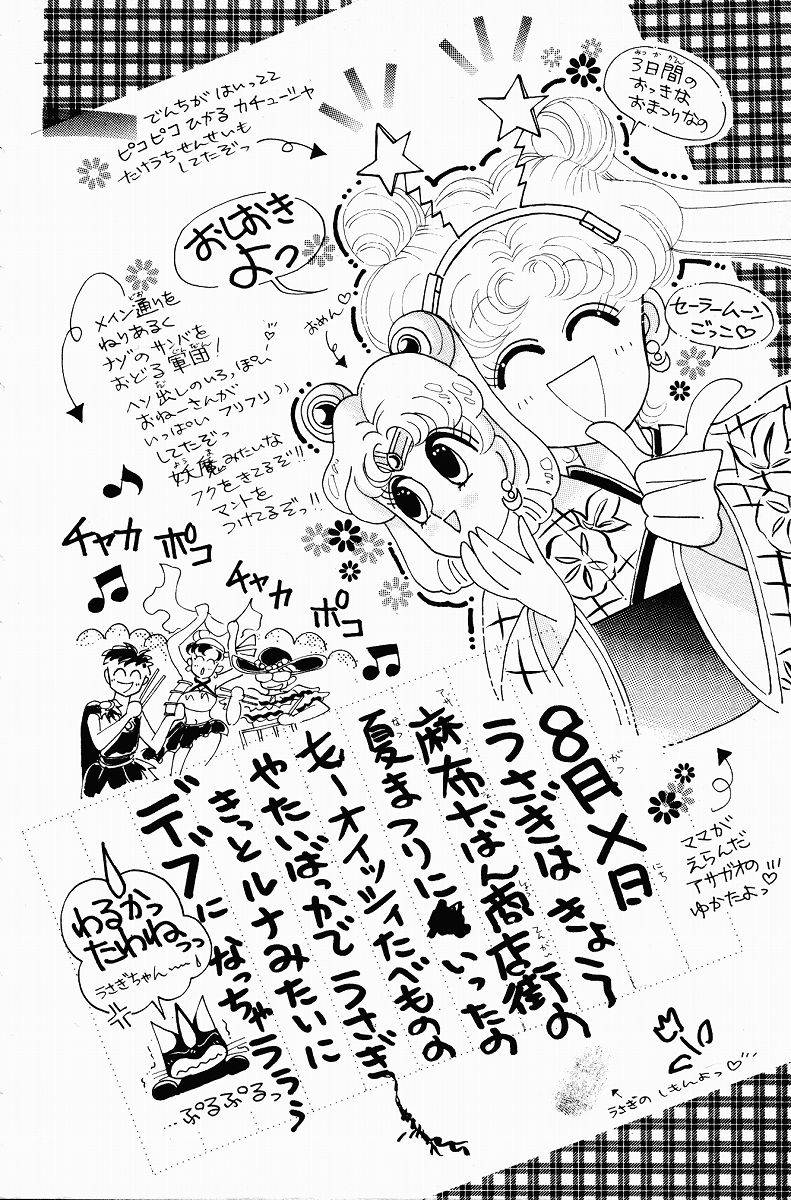 3日間の
おっきな
おまつりなの
みっかかん
でんちがはいってて
ピコピコひかるカチューシャ
たけうちせんせいも
してたぞっ
おしおき
よっ
セーラームーン
ごっこ♡
おめん♡
メイン通りを
ねりあるく
ナゾのサンバを
おどる軍団!
ヘソ出しのいろっぽい
おねーさんが
いっぱいフリフリ
してたぞっ
妖魔みたいな
フクをきてるぞ!!
マントを
つけてるぞっ!!
チャカ
ポコ
チャカ
ポコ
8月×日
がつ
にち
うさぎはきょう
麻布十ばん商店街の
夏まつりにいったの
もーオイッシィたべものの
やたいばっかでうさぎ
きっとルナみたいに
デブになっちゃうううぅ
わるかっ
たわねっっ
うさぎちゃん
ぷるぷるっ
ママが
えらんだ
アサガオの
ゆかたよっ♡
うさぎのしもんよっ♡